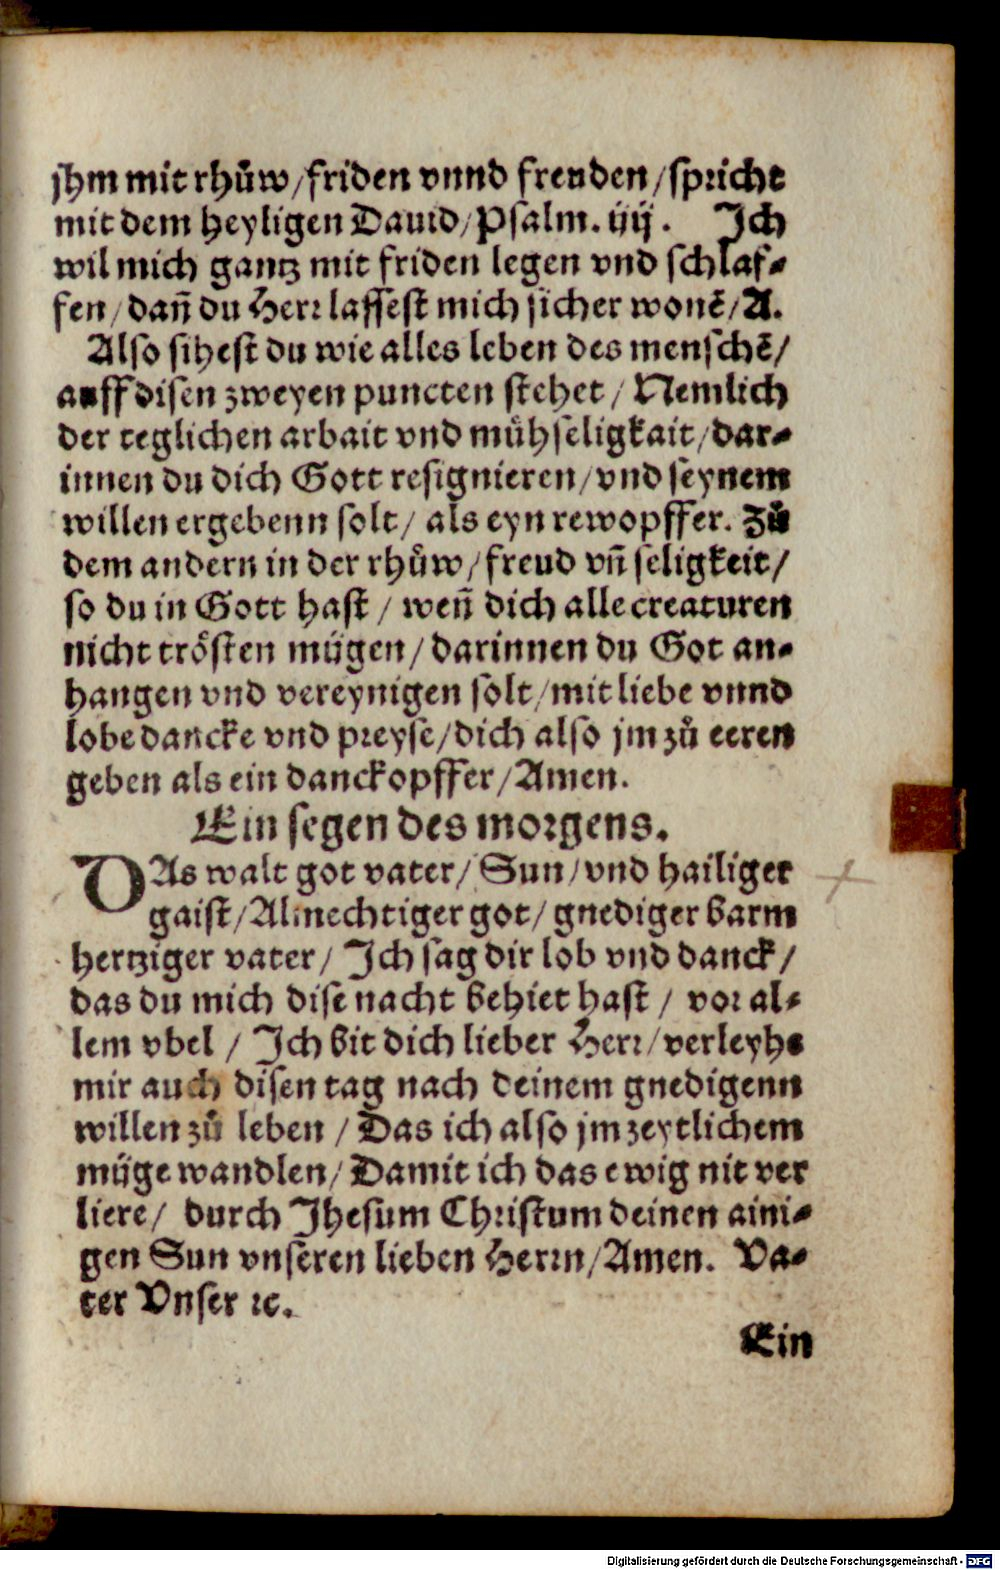 jhm mit rhuͦw/friden vnnd freuden/spricht
mit dem heyligen Dauid/Psalm. iiij. Ich
wil mich gantz mit friden legen vnd schlaf-
fen/dañ du Herr lassest mich sicher wonẽ/A.
Also sihest du wie alles leben des menschẽ/
auff disen zweyen puncten stehet/Nemlich
der teglichen arbait vnd muͤhseligkait/dar-
innen du dich Gott resignieren/vnd seynem
willen ergebenn solt/als eyn rewopffer. Zuͦ
dem andern in der rhuͦw/freud vñ seligkeit/
so du in Gott hast/weñ dich alle creaturen
nicht troͤsten muͤgen/darinnen du Got an-
hangen vnd vereynigen solt/mit liebe vnnd
lobe dancke vnd preyse/dich also jm zuͦ eeren
geben als ein danckopffer/Amen.
Ein segen des morgens.
DAs walt got vater/Sun/vnd hailiger
gaist/Almechtiger got/gnediger barm
hertziger vater/Ich sag dir lob vnd danck/
das du mich dise nacht behiet hast/vor al-
lem vbel/Ich bit dich lieber Herr/verleyhe
mir auch disen tag nach deinem gnedigenn
willen zuͦ leben/Das ich also jm zeytlichem
muͤge wandlen/Damit ich das ewig nit ver
liere/durch Jhesum Christum deinen aini-
gen Sun vnseren lieben Herrn/Amen. Va-
ter Vnser ꝛc.
Ein
Digitalisierung gefördert durch die Deutsche Forschungsgemeinschaft - DFG